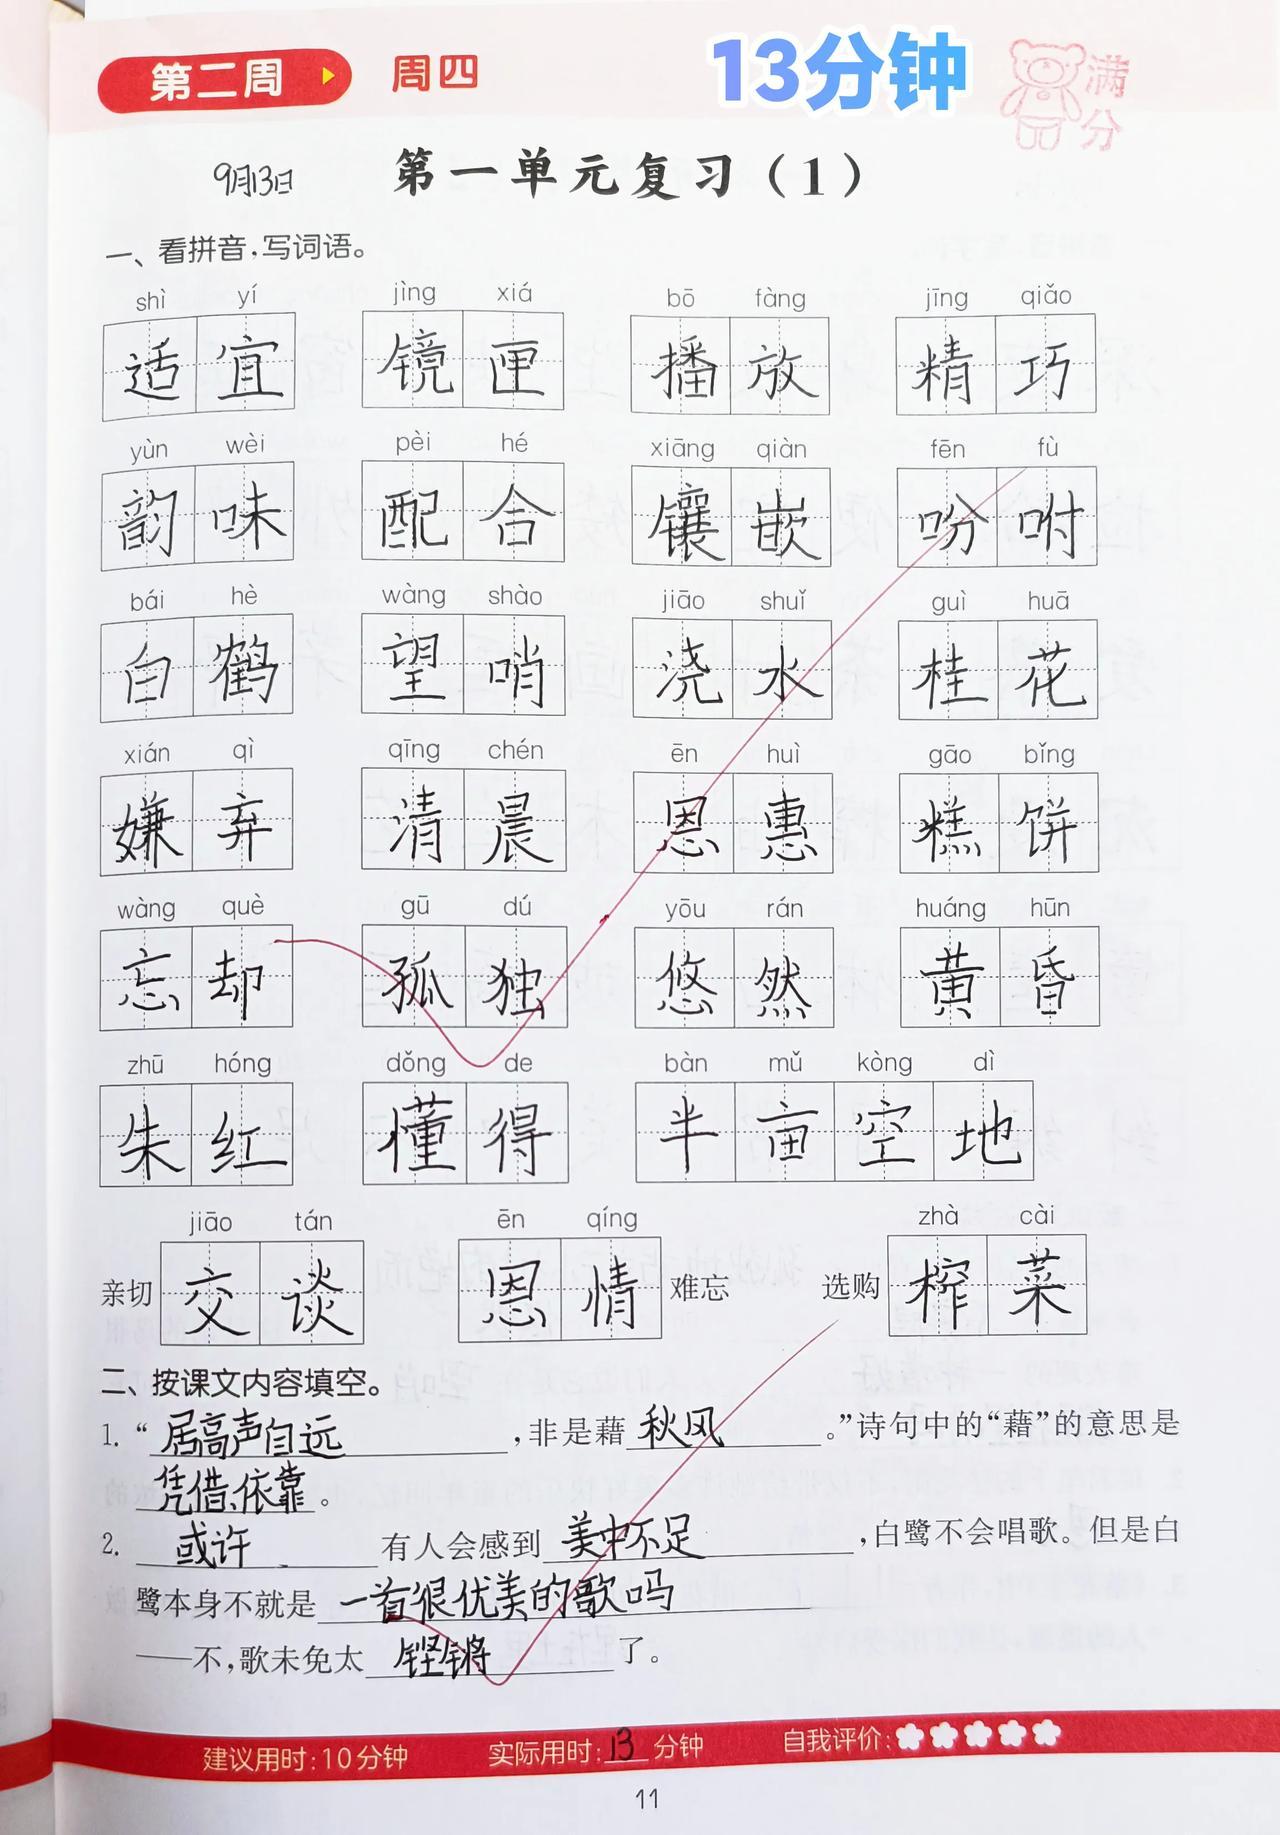 第二周 周四 13分钟 满分
9月13日 第一单元复习(1)
一、看拼音,写词语。
shì yí jìng xiá bō fàng jīng qiǎo
适宜 镜匣 播放 精巧
yùn wèi pèi hé xiāng qiàn fēn fù
韵味 配合 镶嵌 吩咐
bái hè wàng shào jiāo shuǐ guì huā
白鹤 望哨 浇水 桂花
xián qì qīng chén ēn huì gāo bǐng
嫌弃 清晨 恩惠 糕饼
wàng què gū dú yōu rán huáng hūn
忘却 孤独 悠然 黄昏
zhū hóng dǒng de bàn mǔ kòng dì
朱红 懂得 半亩空地
jiāo tán ēn qíng zhà cài
亲切 交谈 恩情 难忘 选购 榨菜
二、按课文内容填空。
1. “居高声自远,非是藉秋风。”诗句中的“藉”的意思是
凭借、依靠。
2. 或许有人会感到美中不足,白鹭不会唱歌。但是白
鹭本身不就是一首很优美的歌吗
——不,歌未免太铿锵了。
建议用时:10分钟 实际用时:13分钟 自我评价:
11